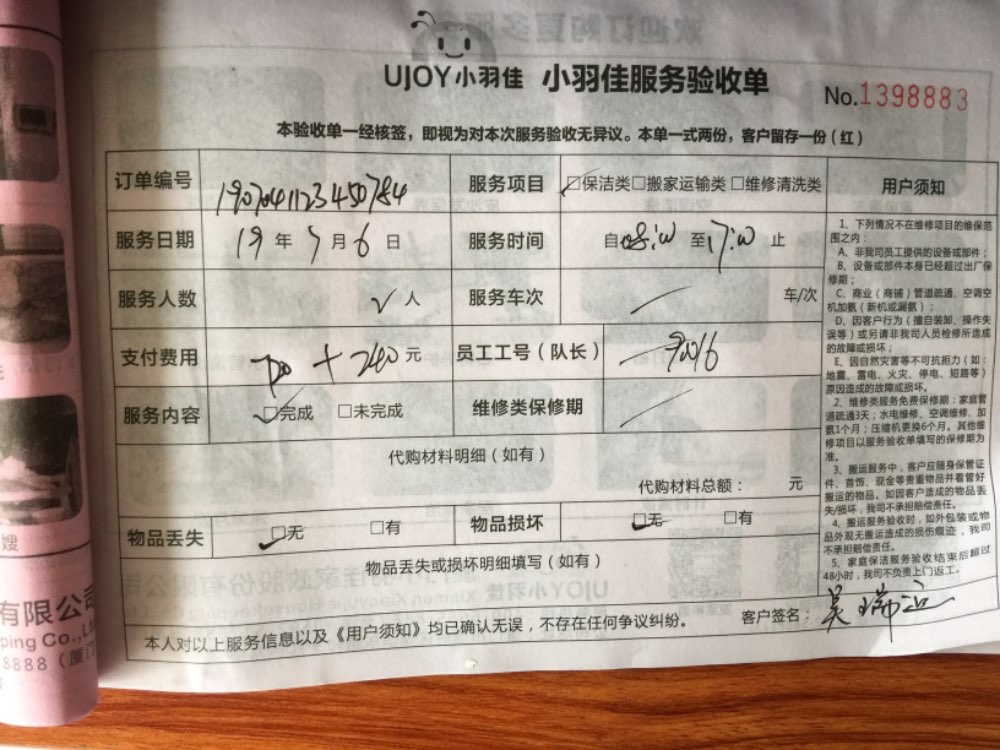 UJOY小羽佳 小羽佳服务验收单
No.1398883
本验收单一经核签，即视为对本次服务验收无异议。本单一式两份，客户留存一份（红）
订单编号 服务项目 □保洁类□搬家运输类□维修清洗类
服务日期 19年7月6日 服务时间 自08:00至17:00止
服务人数 人 服务车次 车/次
支付费用 +240元 员工工号（队长）
服务内容 □完成 □未完成 维修类保修期
代购材料明细（如有）
代购材料总额： 元
物品丢失 □无 □有 物品损坏 □无 □有
物品丢失或损坏明细填写（如有）
本人对以上服务信息以及《用户须知》均已确认无误，不存在任何争议纠纷。
客户签名：
用户须知
1、下列情况不在维修项目的维保范
围之内：
A、非我司员工提供的设备或部件；
B、设备或部件本身已经超过出厂保
修期；
C、商业（商铺）管道疏通、空调空
机加氨（新机或漏氨）；
D、因客户行为（擅自装卸、操作失
误等）或另请非我司人员检修所造成
的故障或损坏；
E、因自然灾害等不可抗拒力（如：
地震、雷电、火灾、停电、短路等）
原因造成的故障或损坏。
2、维修类服务免费保修期：家庭管
道疏通3天；水电维修、空调维修、加
氨1个月；压缩机更换6个月。其他维
修项目以服务验收单填写的保修期为
准。
3、搬运服务中，客户应随身保管证
件、首饰、现金等贵重物品并看管好
搬运的物品。如因客户造成的物品丢
失/损坏，我司不承担赔偿责任。
4、搬运服务验收时，如外包装或物
品外观无搬运造成的损伤痕迹，我司
不承担赔偿责任。
5、家庭保洁服务验收结束后超过
48小时，我司不负责上门返工。
嫂
有限公司
ping Co.,Lt
8888（厦门